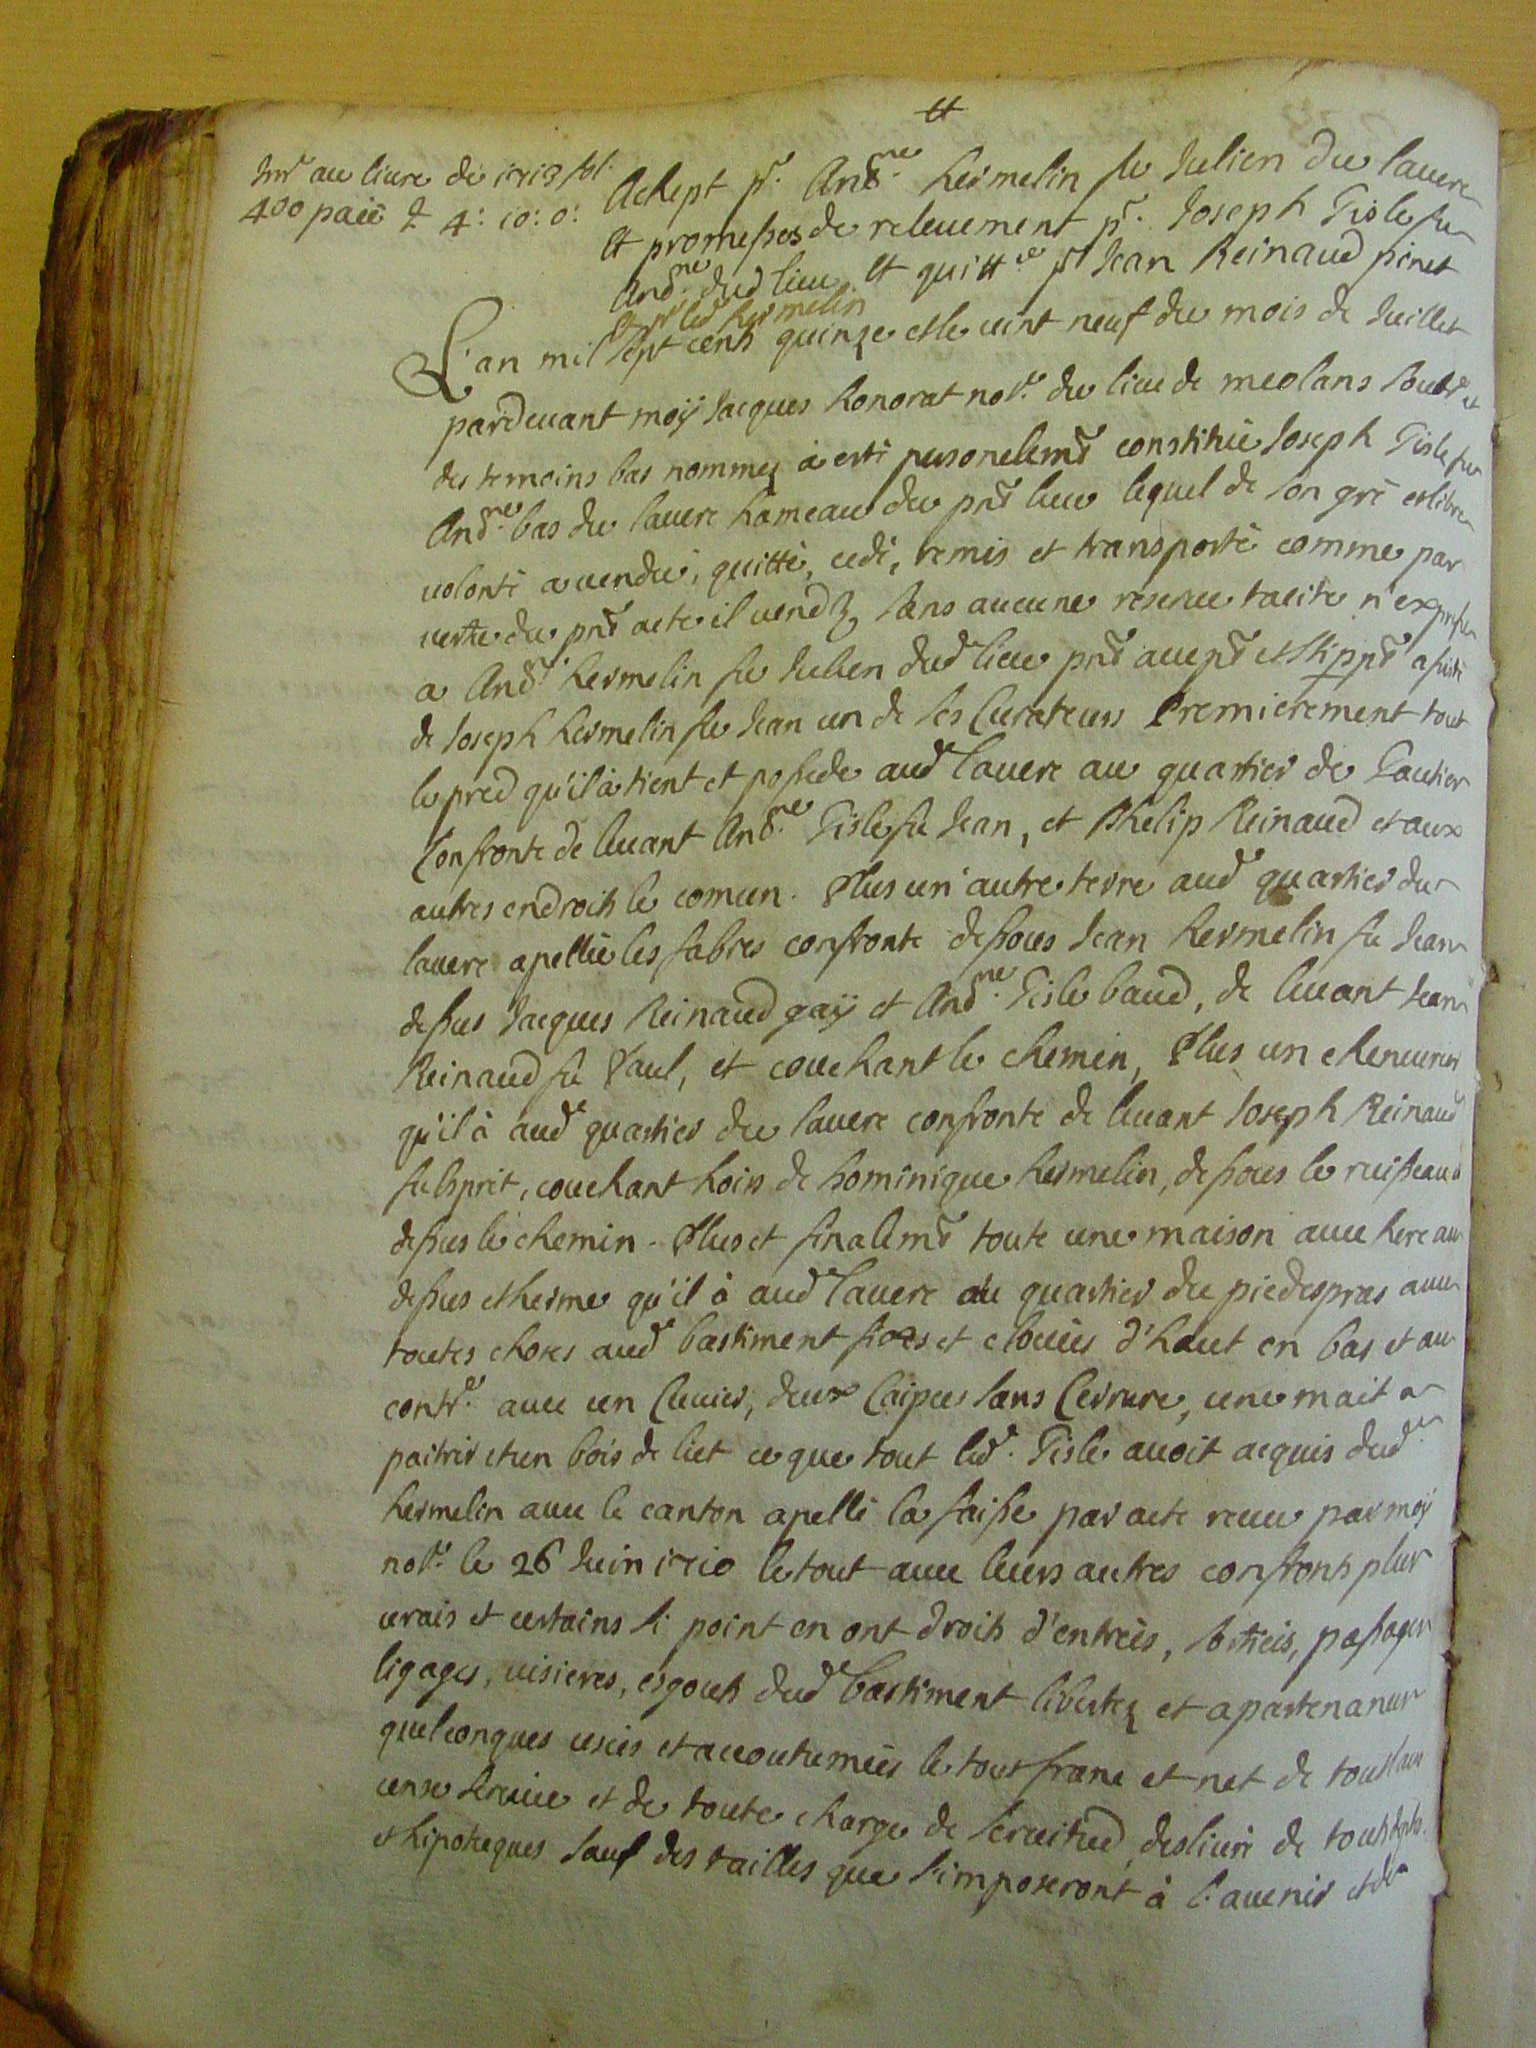 tt
Inr.e au livre de 1713 fol.
400 paié £ 4: 10: 0:
Achept p.r And.ne hermelin fu Julien du lavere
et promesses de relevement p.r Joseph Gisle fu
And.ne dud lieu et quitt.ce p.r Jean Reinaud pinet
et p.r led hermelin
L'an mil sept cents quinze et le vint neuf du mois de Juillet
pardevant moÿ Jacques honorat no.re du lieu de meolans soub.né et
des temoins bas nommez à esté personelem.t constitué Joseph Gisle fu
And.ne bas du lavere hameau du pn.t lieu lequel de son gré et libre
volonté a vendu, quitté, cedé, remis et transporté comme par
vertu du pn.t acte il vend sans aucune reserve tacite n'expresse
a And.ne hermelin fu Julien dud lieu pn.t accep.t et stippn.t assisté
de Joseph hermelin fu Jean un de ses Curateurs Premierement tout
le pred qu'il à tient et possede aud lavere au quartier de Gautier
Confronte de levant And.ne Gisle fu Jean, et Phelip Reinaud et aux
autres endroits le comun. Plus un'autre terre aud quartier du
lavere apellée les fabres confronte dessous Jean hermelin fu Jean
dessus Jacques Reinaud gaÿ et And.ne Gisle baud, de levant Jean
Reinaud fu Paul, et couchant le chemin, Plus un chenevier
qu'il à aud quartier du lavere confronte de levant Joseph Reinaud
fu Esprit, couchant hoirs de hominique hermelin, dessous le ruisseau
dessus le chemin. Plus et finalem.t toute une maison avec here au
dessus et herme qu'il à aud lavere au quartier du piedespras avec
toutes choses aud bastiment fixes et clouées d'haut en bas et au
contr.e avec un Cuvier, deux Caisses sans Cerrure, une mait a
paitrir et un bois de liet ce que tout led. Gisle avoit acquis dud.
hermelin avec le canton apellé la faisse par acte receu par moÿ
no.re le 26 Juin 1710 le tout avec leurs autres confronts plus
vrais et certains si point en ont droits d'entrées, sorties, passages
ligages, visieres, esgouts dud bastiment libertez et apartenances
quelconques usées et accoutumées le tout franc et net de tous
cense service et de toute charge de servitud, deslivré de touts depts
et hipoteques sauf des tailles que s'imposeront à l'avenir et de